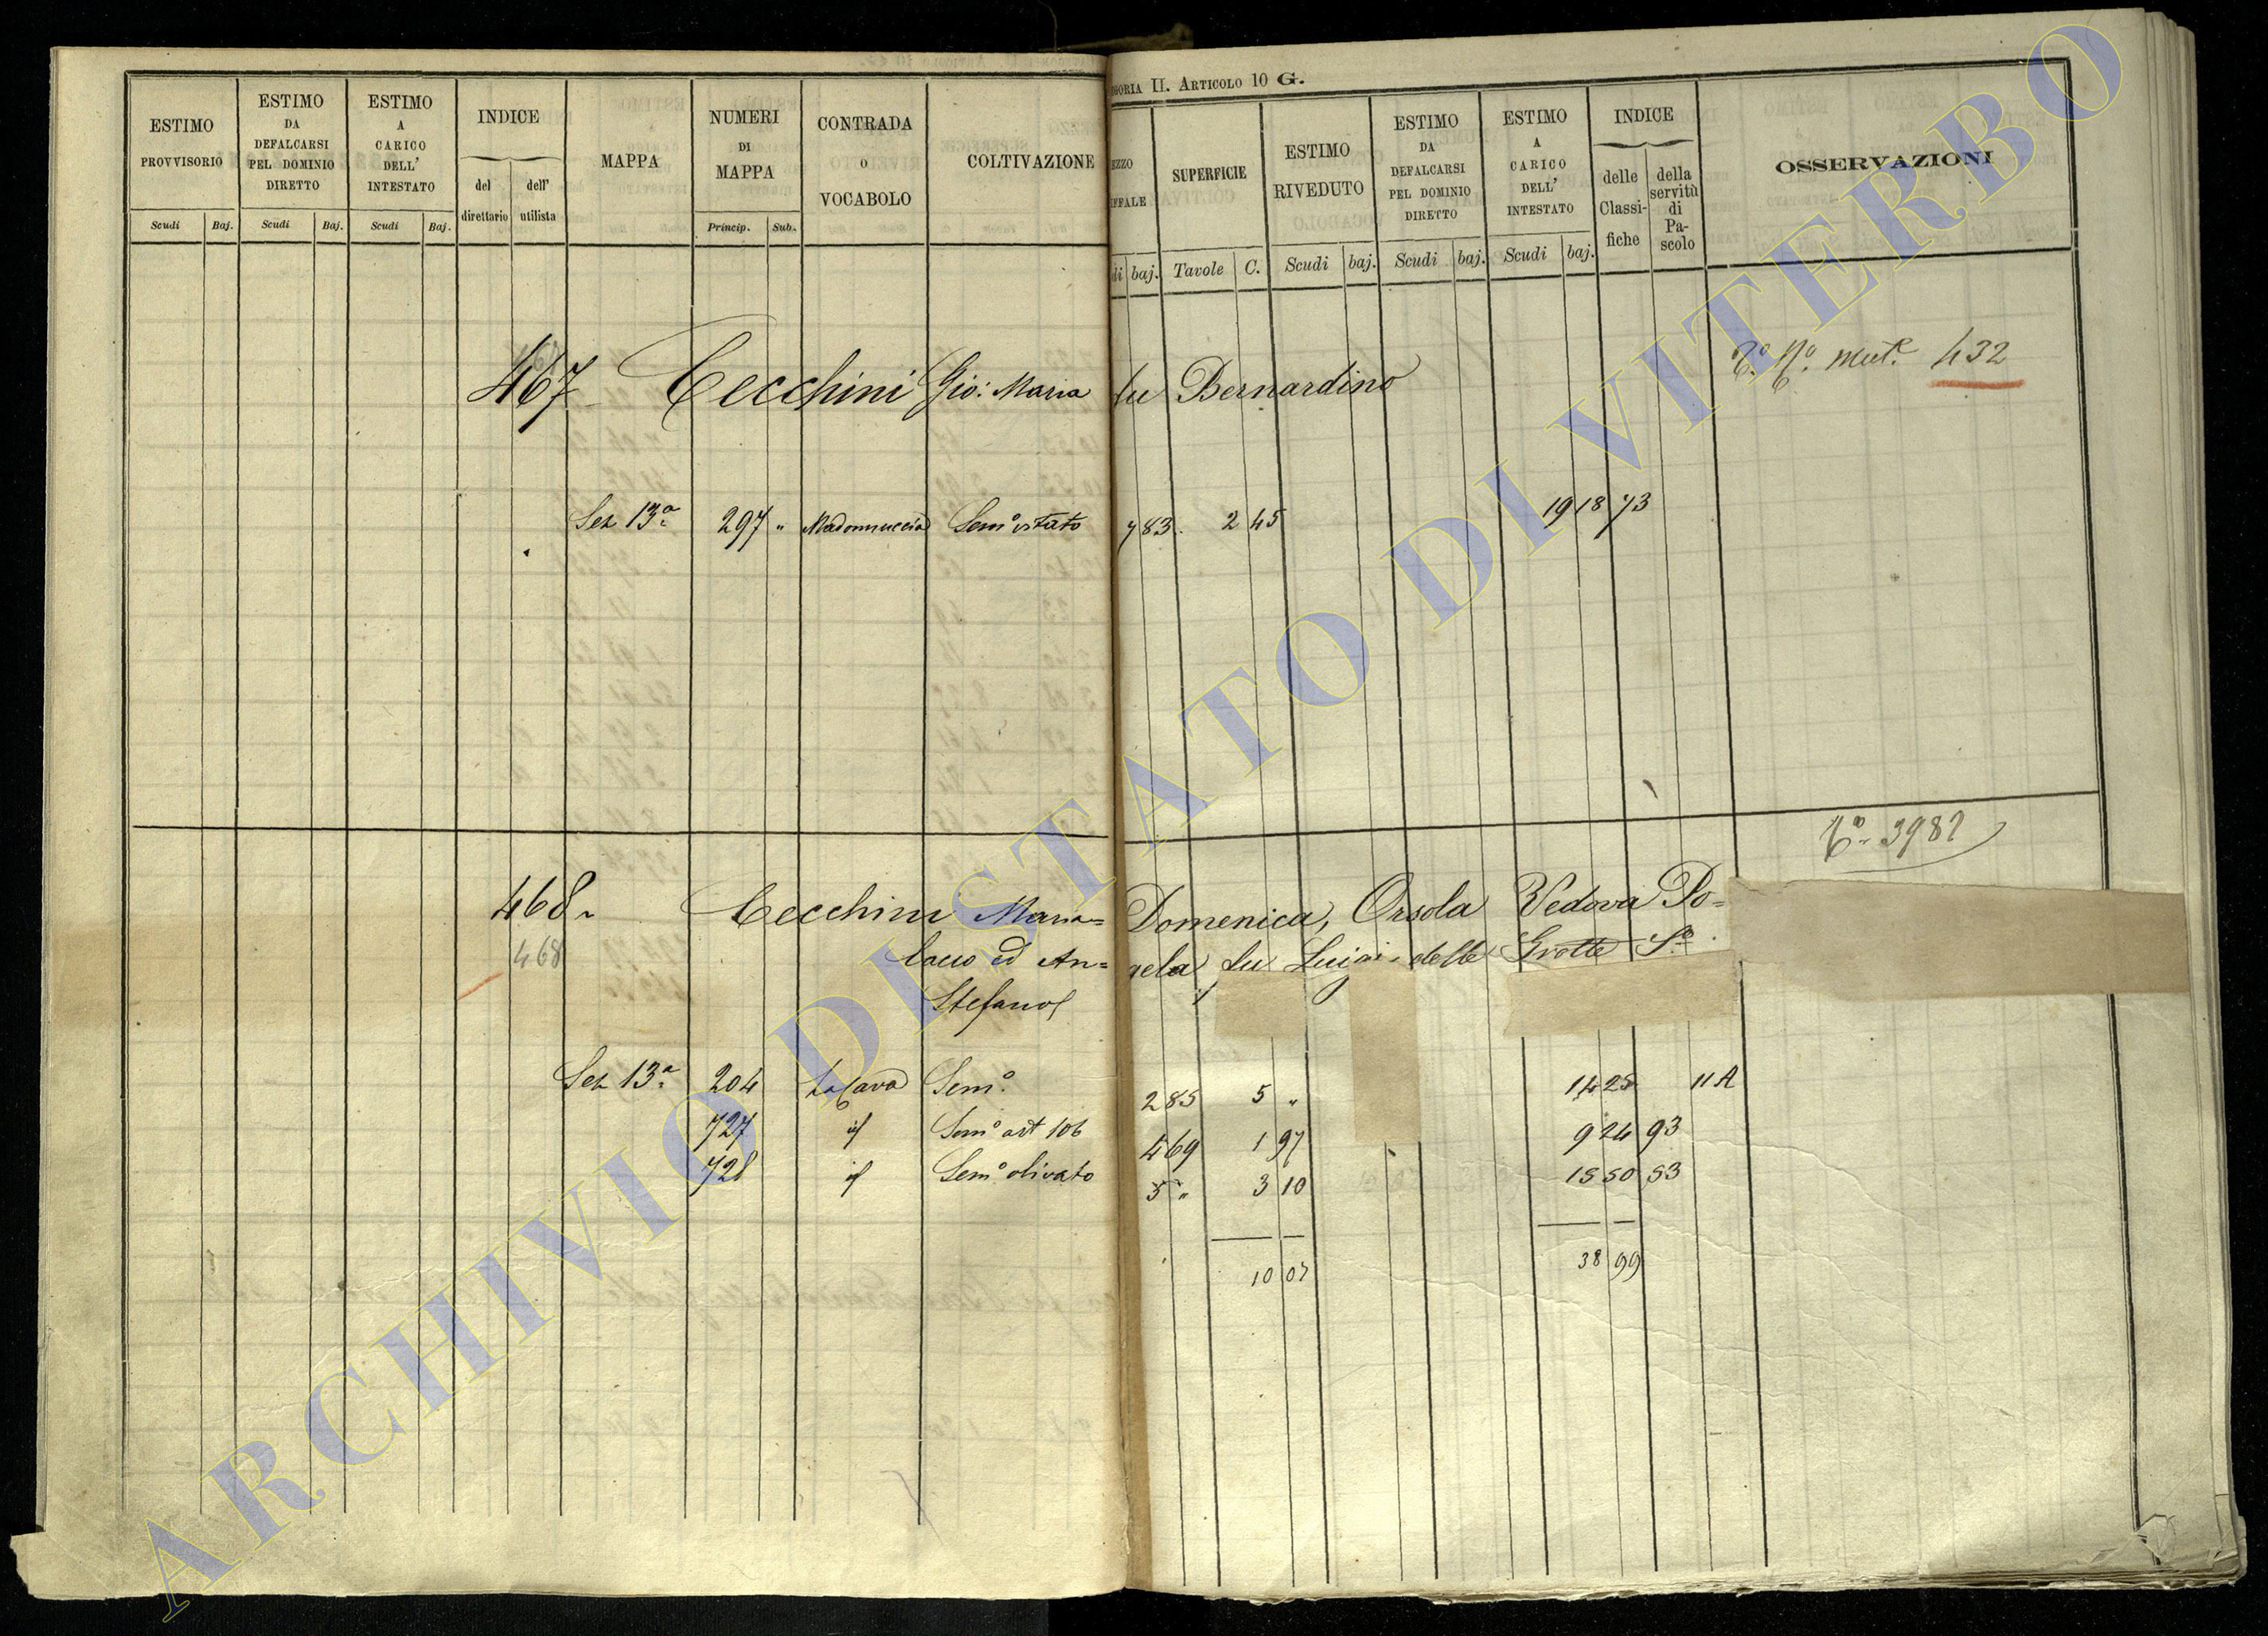 GORIA II. ARTICOLO 10 G.
ESTIMO PROVVISORIO
ESTIMO DA DEFALCARSI PEL DOMINIO DIRETTO
ESTIMO A CARICO DELL' INTESTATO
INDICE
del direttario
dell' utilista
MAPPA
NUMERI DI MAPPA
CONTRADA O VOCABOLO
COLTIVAZIONE
Scudi Baj. Scudi Baj. Scudi Baj. Princip. Sub.
EZZO
IFFALE
SUPERFICIE
ESTIMO RIVEDUTO
ESTIMO DA DEFALCARSI PEL DOMINIO DIRETTO
ESTIMO A CARICO DELL' INTESTATO
INDICE
delle Classi-fiche
della servitù di Pa-scolo
OSSERVAZIONI
di baj. Tavole C. Scudi baj. Scudi baj. Scudi baj.
mut.e 432
467 Cecchini Gio: Maria fu Bernardino
Sez 13a 297 " Madonnuccia Sem.o vitato 7 83 2 45 19 18 73
3982
468 Cecchini Maria= Domenica, Orsola Vedova Po=
468 lacco ed An= gela fu Luigi delle Grotte S.o
Stefano
Sez 13a 204 La Cava Sem.o 2 85 5 " 14 25 11 A
727 id Sem.o art 106 4 69 1 97 9 24 93
728 id Sem.o olivato 5 " 3 10 15 50 53
10 07 38 99
ARCHIVIO DI STATO DI VITERBO